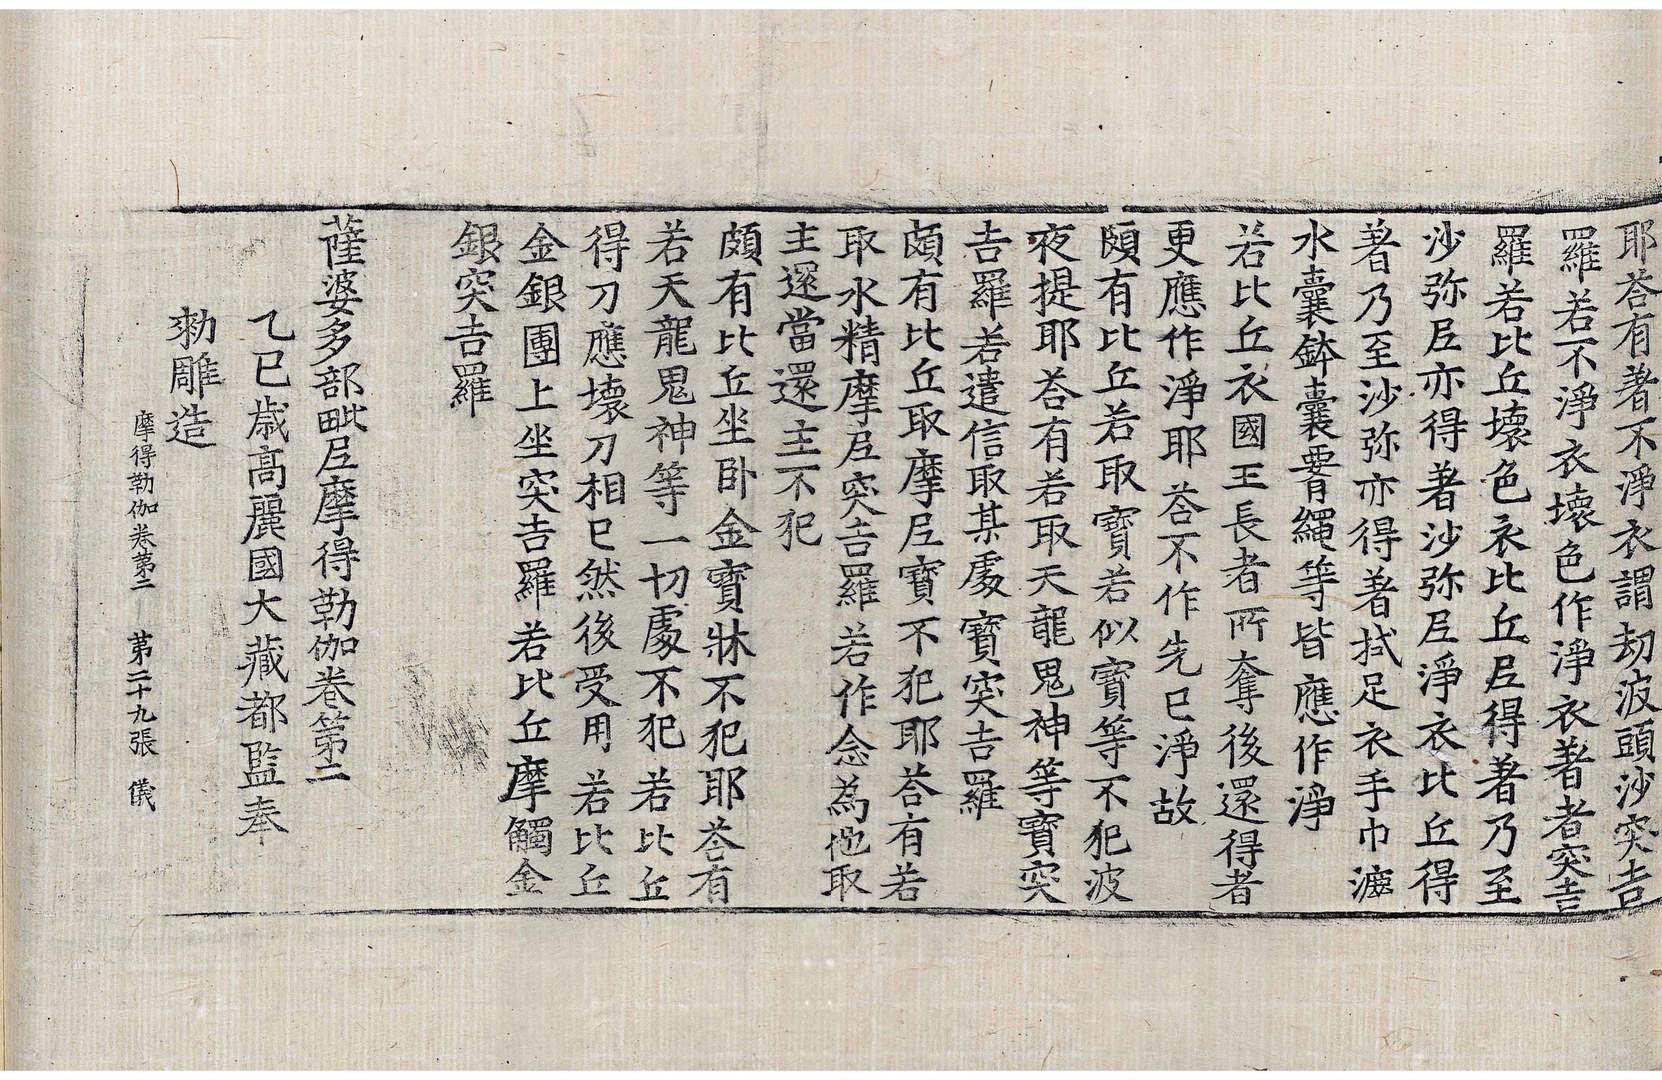 耶荅有著不淨衣謂劫波頭沙突吉
羅若不淨衣壞色作淨衣著者突吉
羅若比丘壞色衣比丘尼得著乃至
沙弥尼亦得著沙弥尼淨衣比丘得
著乃至沙弥亦得著拭足衣手巾漉
水囊鉢囊䙅繩等皆應作淨
若比丘衣國王長者所奪後還得者
更應作淨耶荅不作先已淨故
頗有比丘若取寶若似寶等不犯波
夜提耶荅有若取天龍鬼神等寶突
吉羅若遣信取某處寶突吉羅
頗有比丘取摩尼寶不犯耶荅有若
取水精摩尼突吉羅若作念為他取
主還當還主不犯
頗有比丘坐卧金寶牀不犯耶荅有
若天龍鬼神等一切處不犯若比丘
得刀應壞刀相已然後受用若比丘
金銀團上坐突吉羅若比丘摩觸金
銀突吉羅
薩婆多部毗尼摩得勒伽卷第二
乙巳歳高麗國大藏都監奉
勑雕造
摩得勒伽卷第二 第二十九張 儀